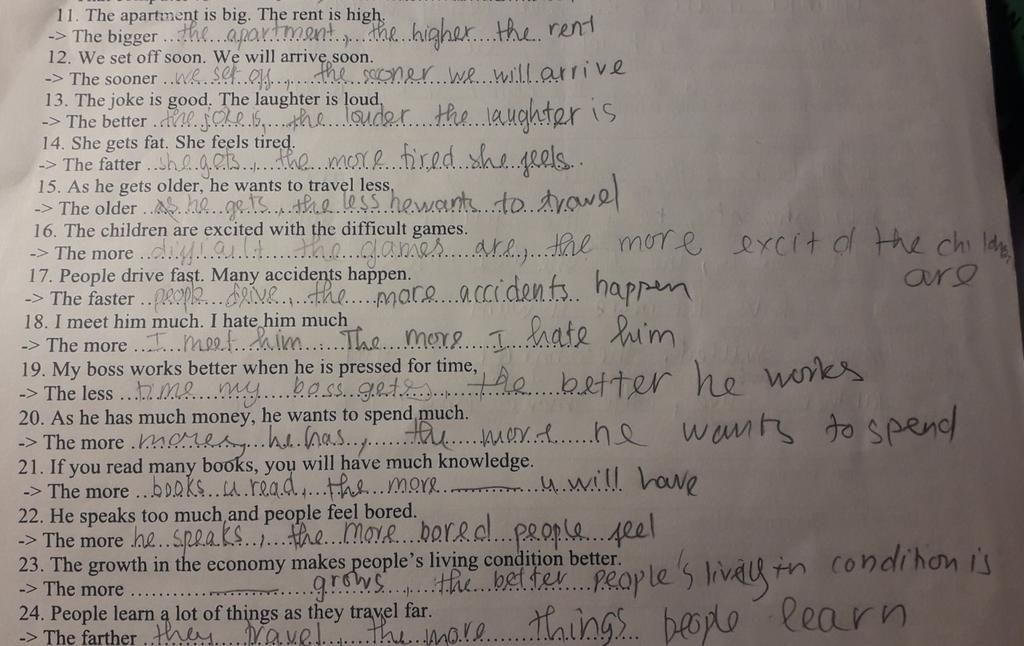 11. The apartment is big. The rent is high.
-> The bigger the apartment, the higher the rent
12. We set off soon. We will arrive soon.
-> The sooner we set off, the sooner we will arrive
13. The joke is good. The laughter is loud.
-> The better the joke is, the louder the laughter is
14. She gets fat. She feels tired.
-> The fatter she gets, the more tired she feels.
15. As he gets older, he wants to travel less.
-> The older as he gets, the less he wants to travel
16. The children are excited with the difficult games.
-> The more difficult the games are, the more excited the children
are
17. People drive fast. Many accidents happen.
-> The faster people drive, the more accidents happen
18. I meet him much. I hate him much
-> The more I meet him The more I hate him
19. My boss works better when he is pressed for time,
-> The less time my boss gets, the better he works
20. As he has much money, he wants to spend much.
-> The more money he has, the more he wants to spend
21. If you read many books, you will have much knowledge.
-> The more books u read, the more u will have
22. He speaks too much and people feel bored.
-> The more he speaks, the more bored people feel
23. The growth in the economy makes people's living condition better.
-> The more grows, the better people's condition is
24. People learn a lot of things as they travel far.
-> The farther they travel, the more things people learn